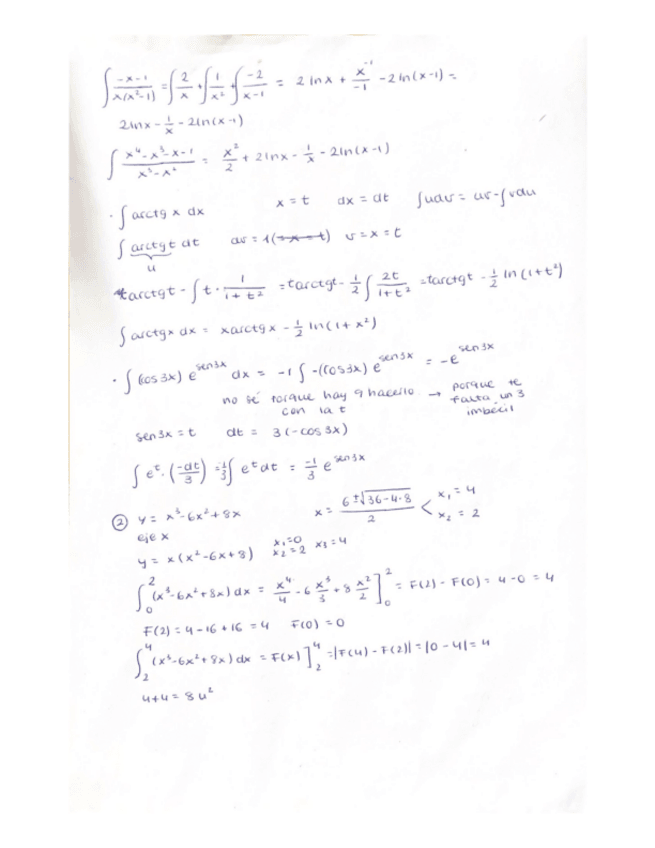 ∫ (-x-1)/(x(x²-1)) = ∫ 2/x + ∫ 1/x² + ∫ -2/(x-1) = 2 ln x + x⁻¹/-1 - 2 ln(x-1) =
2 ln x - 1/x - 2 ln(x-1)
∫ (x⁴-x³-x-1)/(x³-x²) = x²/2 + 2 ln x - 1/x - 2 ln(x-1)
· ∫ arctg x dx x = t dx = dt ∫udv = uv - ∫vdu
∫ arctgt dt dv = 1(-x=t) v = x = t
u
tarctgt - ∫ t · 1/(1+t²) = tarctgt - 1/2 ∫ 2t/(1+t²) = tarctgt - 1/2 ln(1+t²)
∫ arctgx dx = xarctgx - 1/2 ln(1+x²)
· ∫ (cos 3x) e^(sen3x) dx = -1 ∫ -(cos3x) e^(sen3x) = -e^(sen3x)
no sé porque hay q hacerlo con la t → porque te falta un 3 imbécil
sen3x = t dt = 3(-cos 3x)
∫ eᵗ · (-dt/3) = -1/3 ∫ eᵗ dt = -1/3 e^(sen3x)
② y = x³-6x²+8x x = (6 ± √(36-4·8))/2 < x₁ = 4 x₂ = 2
eje x
y = x(x²-6x+8) x₁=0 x₂=2 x₃=4
∫₀² (x³-6x²+8x) dx = x⁴/4 - 6 x³/3 + 8 x²/2 ]₀² = F(2) - F(0) = 4 - 0 = 4
F(2) = 4-16+16 = 4 F(0) = 0
∫₂⁴ (x³-6x²+8x) dx = F(x) ]₂⁴ = |F(4) - F(2)| = |0 - 4| = 4
4+4 = 8 u²